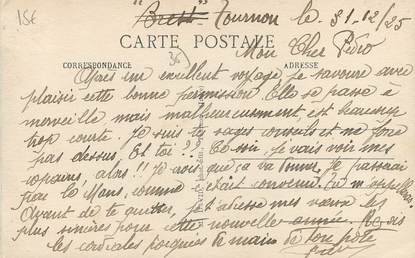 15€
"Brest" Tournon le 31-12/25
CARTE POSTALE
Mon Cher Pedro
CORRESPONDANCE
ADRESSE
Après un excellent voyage, je savoure avec
plaisir cette bonne permission. Elle se passe à
merveille mais malheureusement, est beaucoup
trop courte. Je suis tes sages conseils et ne
pas dessus. Et toi ?? Ce soir, je vais voir mes
copains, alors !! Je vois que ça va barder. Je passerai
par le Mans, comme c'était convenu.
Avant de te quitter, je t'adresse mes vœux les
plus sincères pour cette nouvelle année. Reçois
les cordiales poignées de main de ton pote